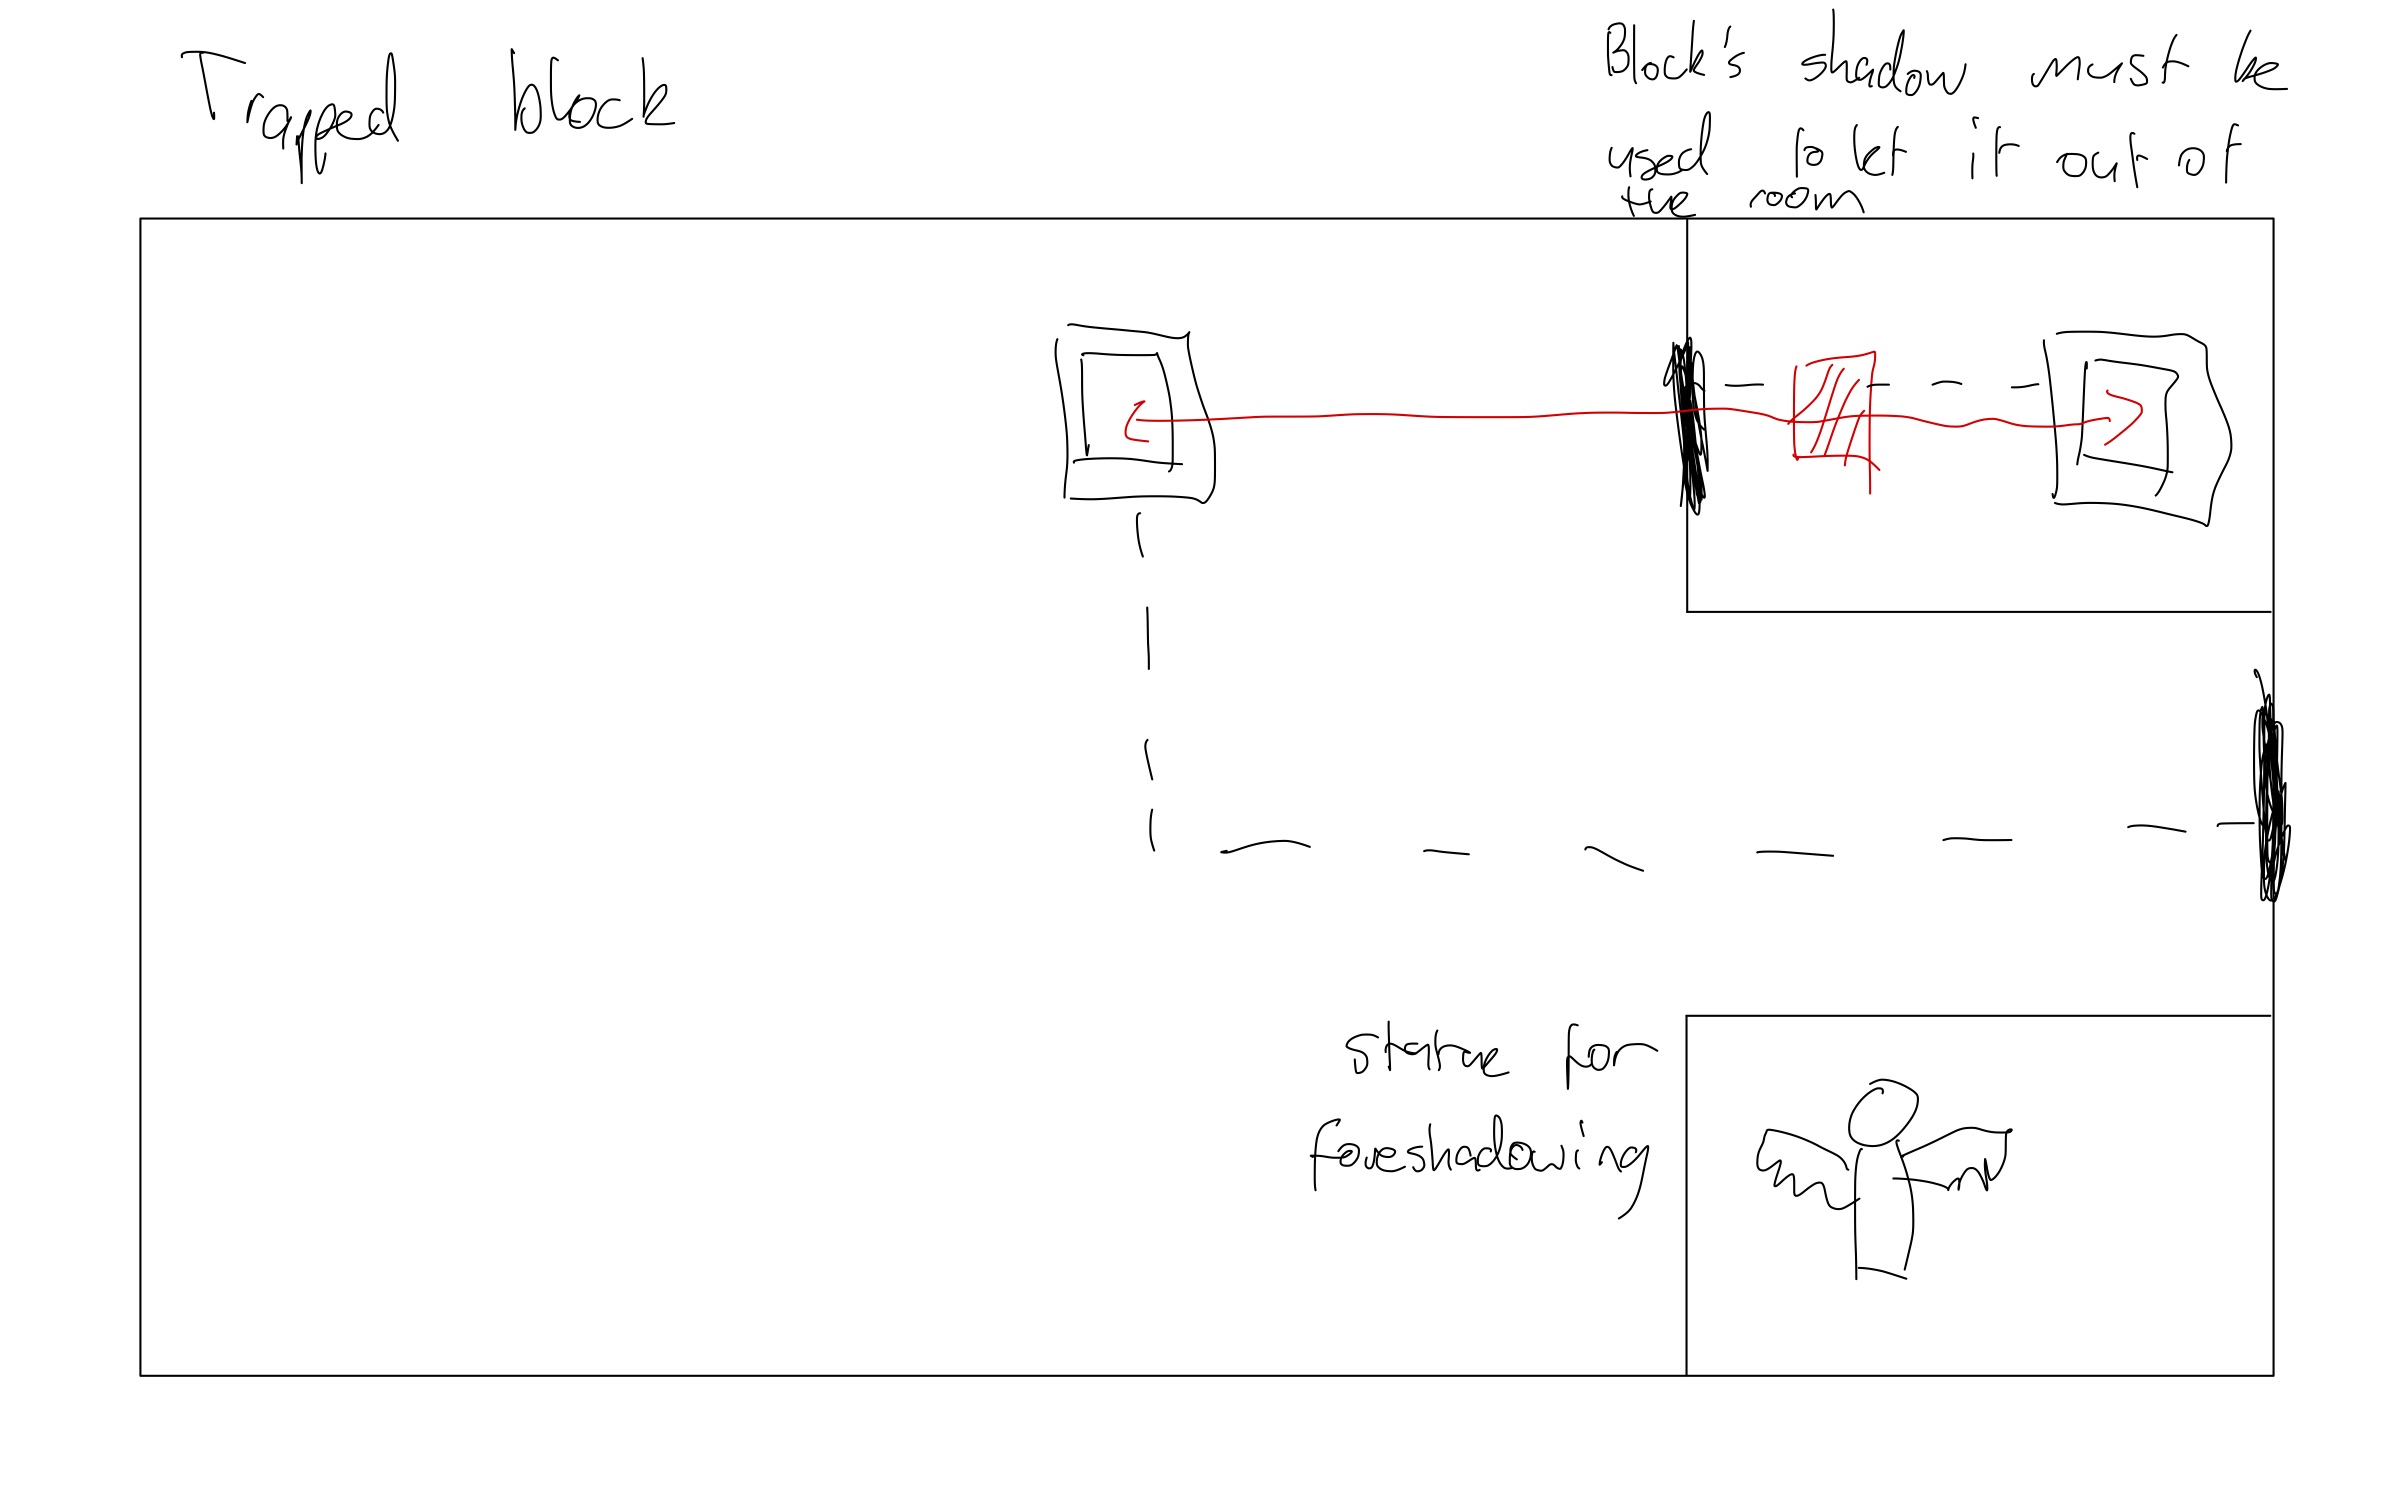 Trapped block
Block's shadow must be
used to let it out of
the room
Statue for
foreshadowing